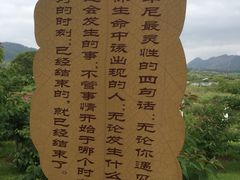 尼最灵性的四句话：无论你遇见
生命中该出现的人：无论发生什么
会发生的事：不管事情开始于哪个时
的时刻，已经结束的，就已经结束了。